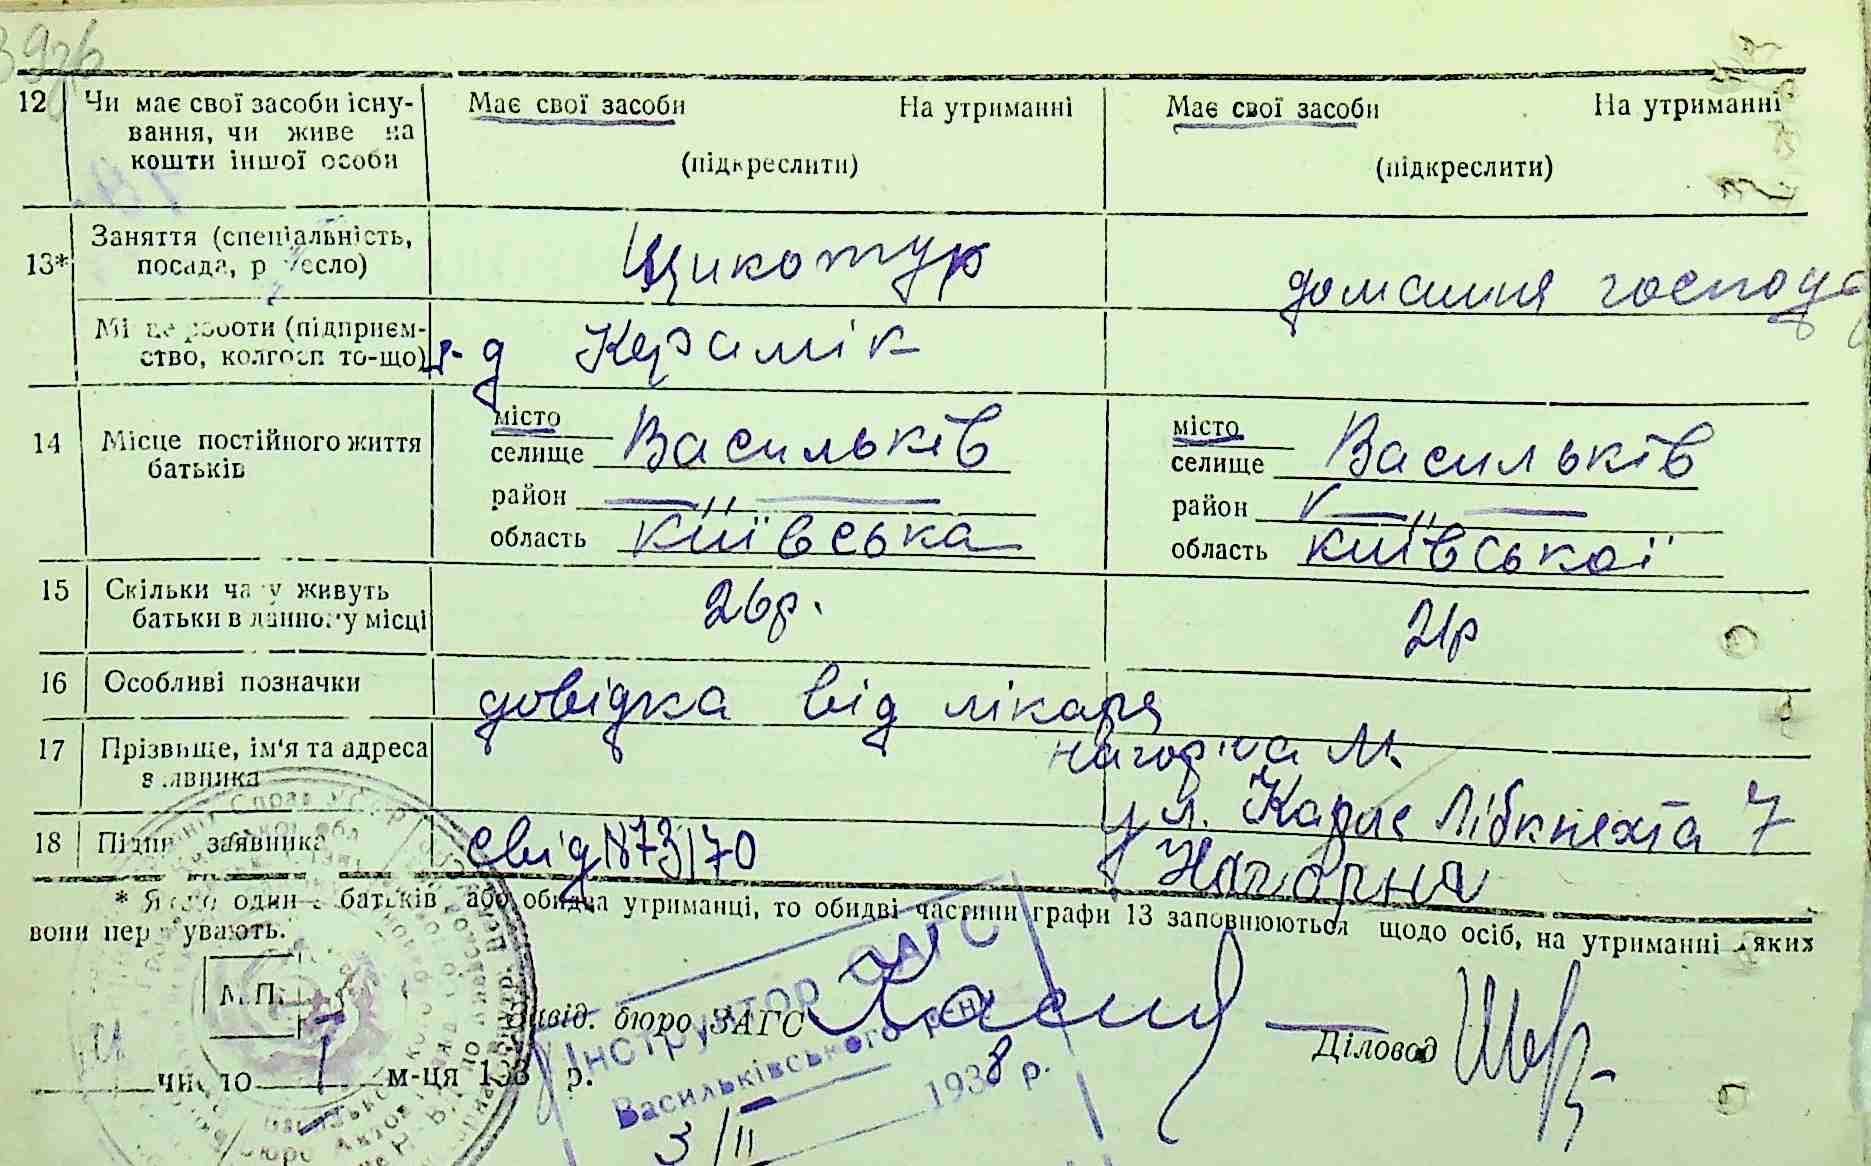 12 Чи має свої засоби існу-
вання, чи живе на
кошти іншої особи
Має свої засоби На утриманні
(підкреслити)
Має свої засоби На утриманні
(підкреслити)
13* Заняття (спеціальність,
посада, ремесло)
Щикотур
домашня господ
Місце роботи (підприєм-
ство, колгосп то-що)
з-д Керамік
14 Місце постійного життя
батьків
місто
селище Васильків
район
область київська
місто
селище Васильків
район
область київської
15 Скільки часу живуть
батьки в данному місці
26р.
21р
16 Особливі позначки
довідка від лікаря
17 Прізвище, ім'я та адреса
заявника
Нагорна М.
ул. Карле Лібкнехта 7
18 Підпис заявника
свід N873/70
Нагорна
* Якщо один з батьків або обидва утриманці, то обидві частини графи 13 заповнюються щодо осіб, на утриманні яких
вони перебувають.
М.П.
Завід. бюро ЗАГС
Діловод
число 1 м-ця 1938 р.
Інструктор ЗАГС
Васильківського
3/II 1938 р.